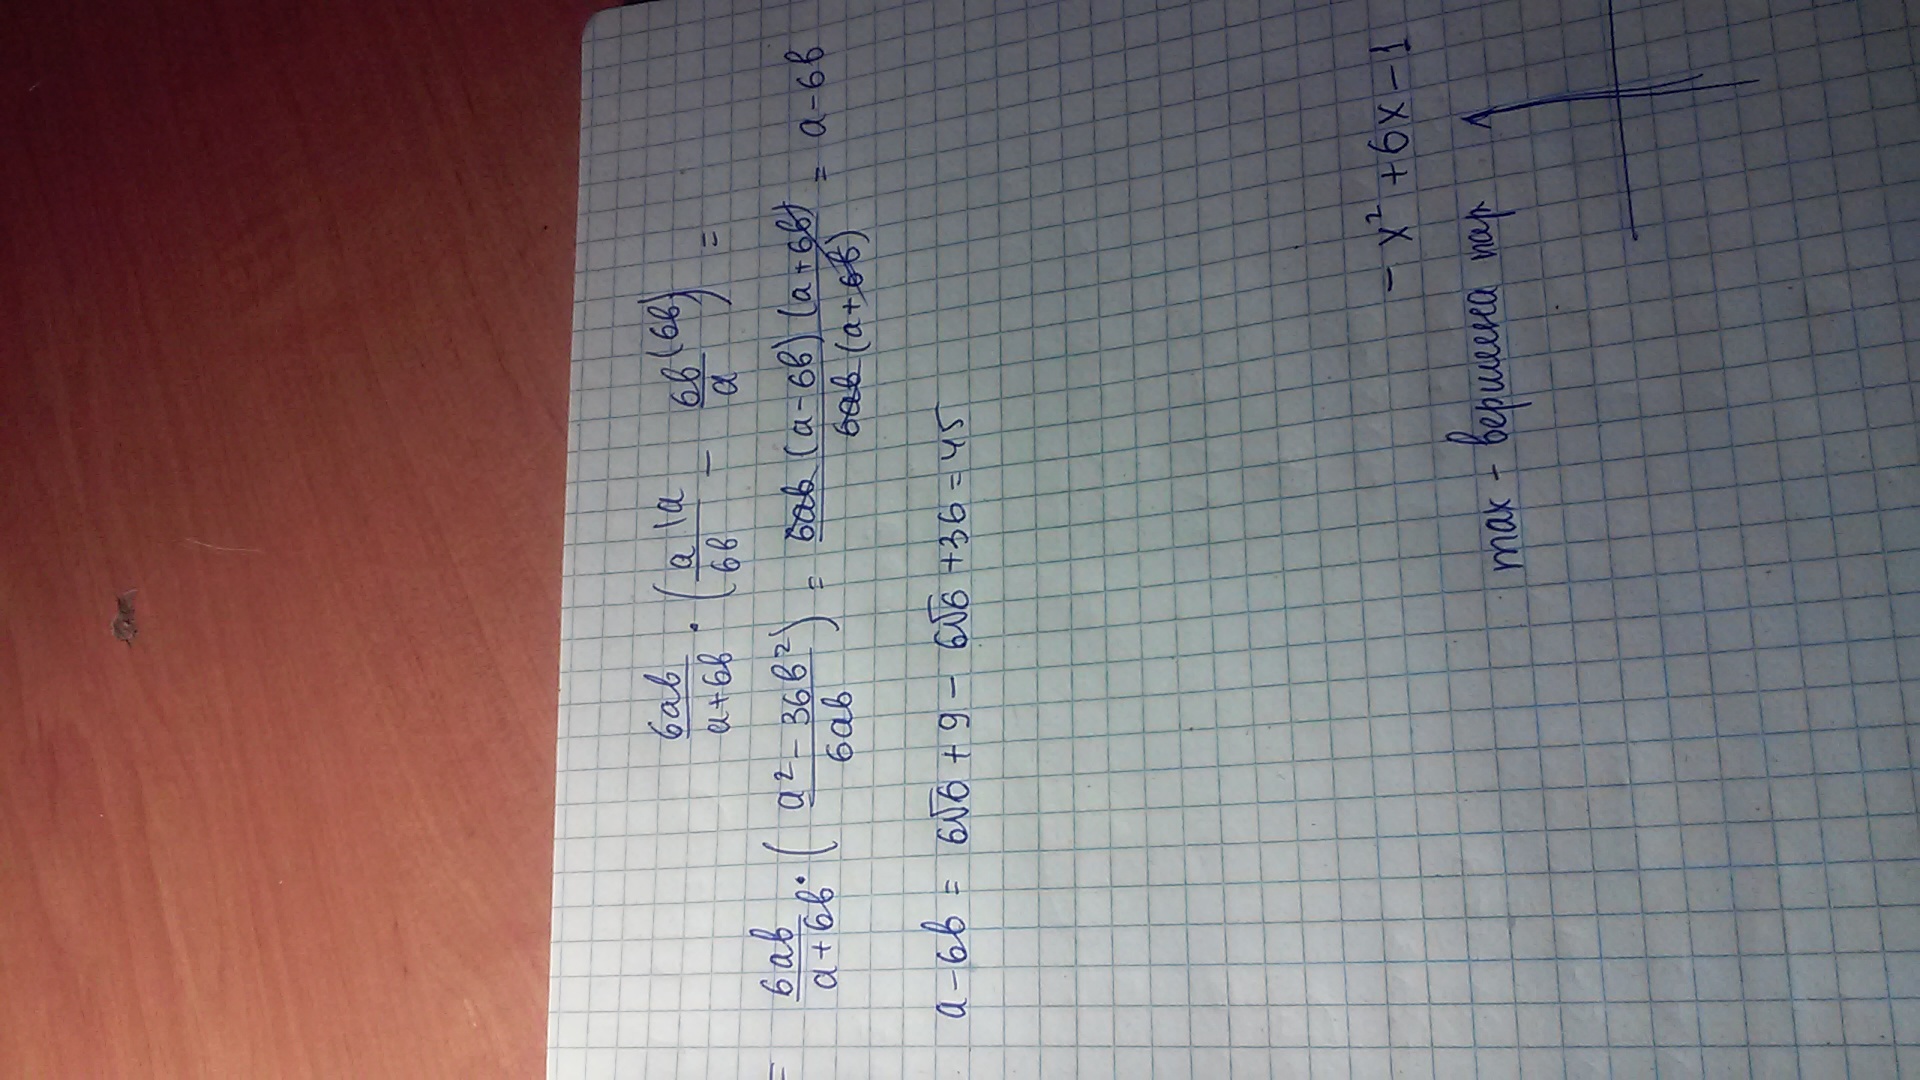 6ab/(a+6b) · (a/6b \a − 6b/a (6b)) =
= 6ab/(a+6b) · ((a² − 36b²)/6ab) = 6ab(a−6b)(a+6b)/6ab(a+6b) = a−6b
a−6b = 6√6 + 9 − 6√6 + 36 = 45
−x² + 6x − 1
max - вершина пар